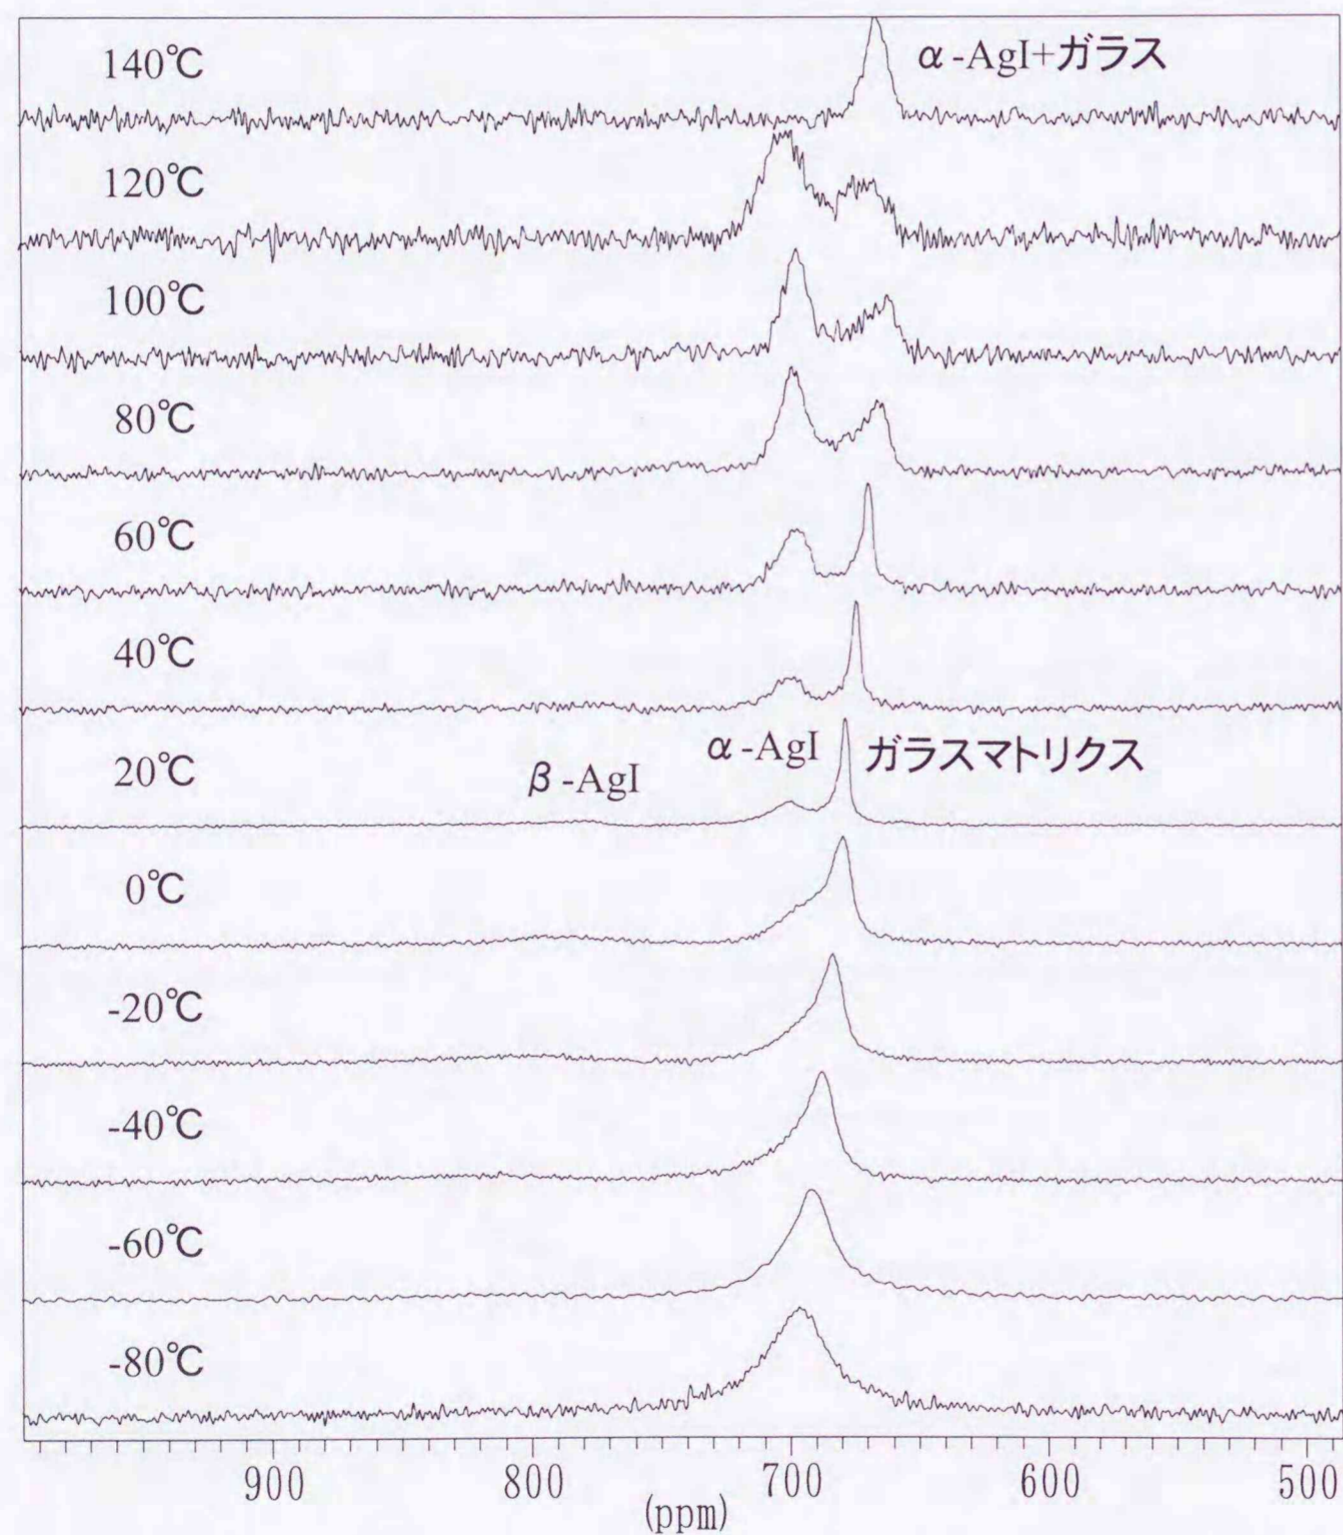 140℃
α-AgI+ガラス
120℃
100℃
80℃
60℃
40℃
20℃
β-AgI
α-AgI
ガラスマトリクス
0℃
-20℃
-40℃
-60℃
-80℃
900 800 700 600 500
(ppm)